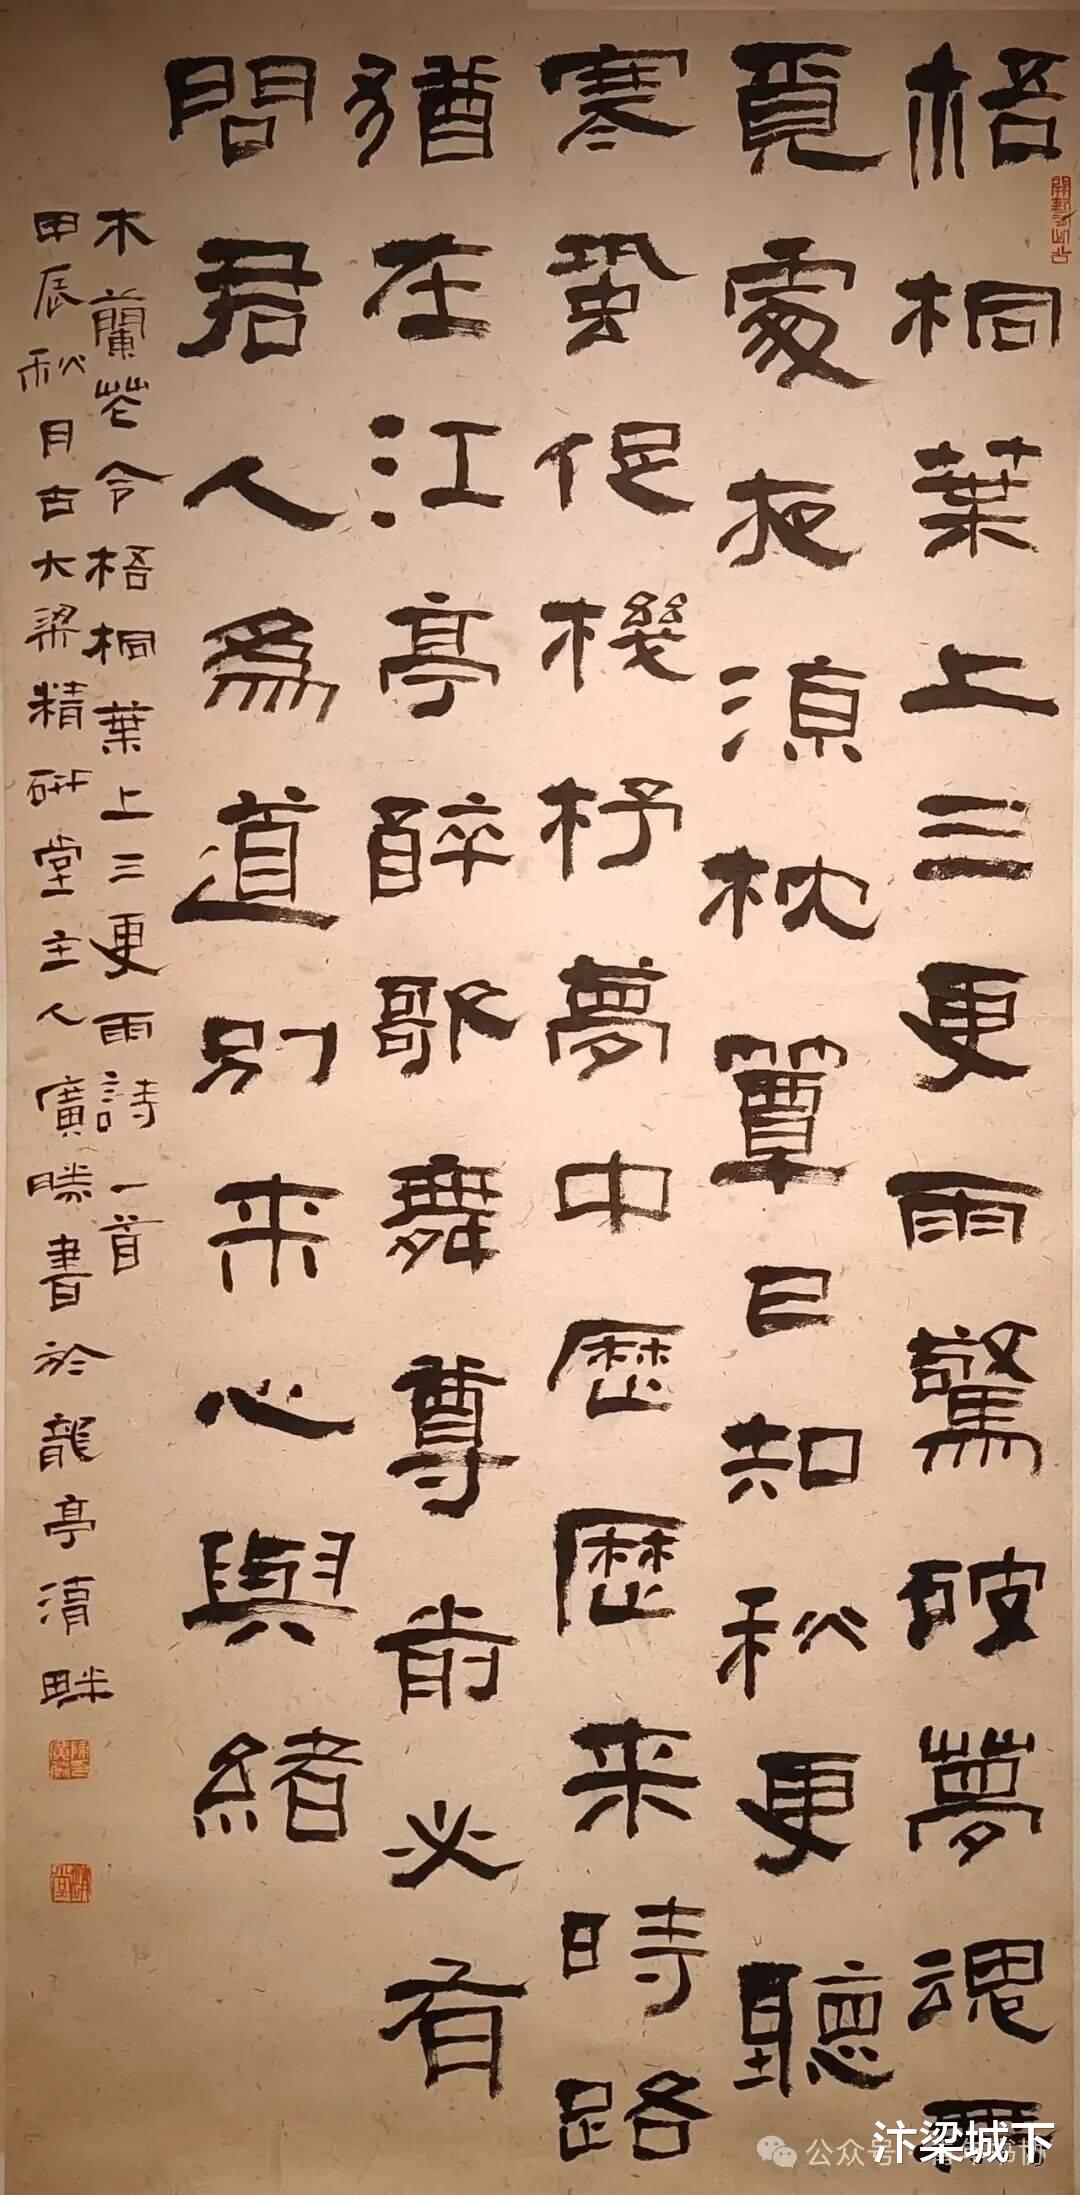 梧桐葉上三更雨驚破夢魂無
覓處夜涼枕簟已知秋更聽
寒蛩促機杼夢中歷歷來時路
猶在江亭醉歌舞尊前必有
問君人為道別来心與緒
木蘭花令梧桐葉上三更雨詩一首
甲辰秋月古大梁精研堂主人廣勝書於龍亭湖畔
公众号
汴梁城下